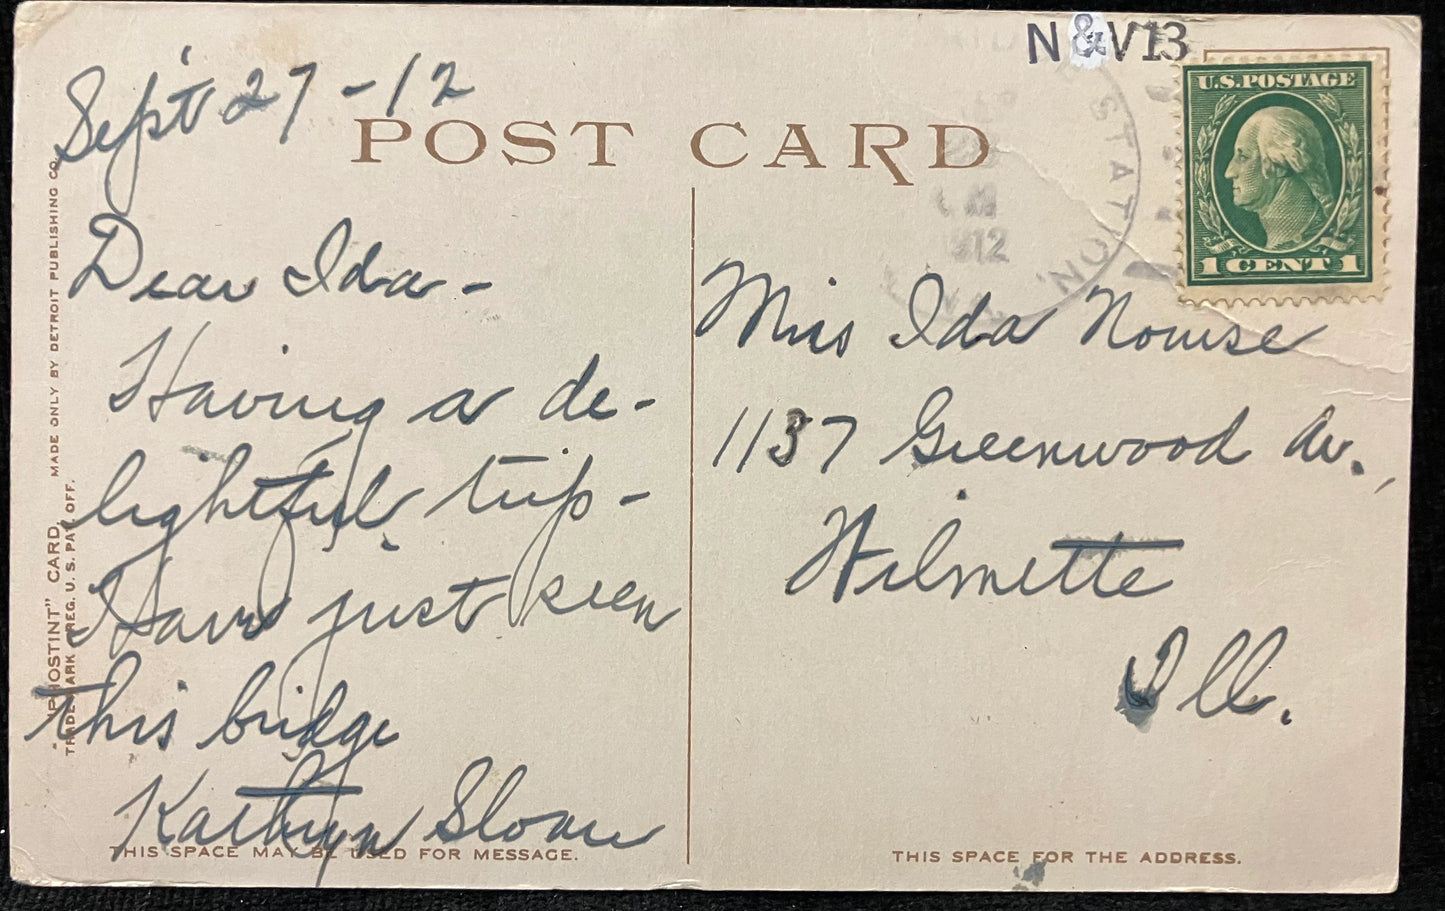 N & V13
Sep't 27 - 12
U.S. POSTAGE
1 CENT 1
STATION.
1912
POST CARD
Dear Ida -
Having a de-
lightful trip -
Have just seen
this bridge
Kathryn Sloan
Miss Ida Nourse
1137 Greenwood Av.,
Wilmette
Ill.
"PHOSTINT" CARD, MADE ONLY BY DETROIT PUBLISHING CO.
TRADEMARK REG. U. S. PAT. OFF.
THIS SPACE MAY BE USED FOR MESSAGE.
THIS SPACE FOR THE ADDRESS.